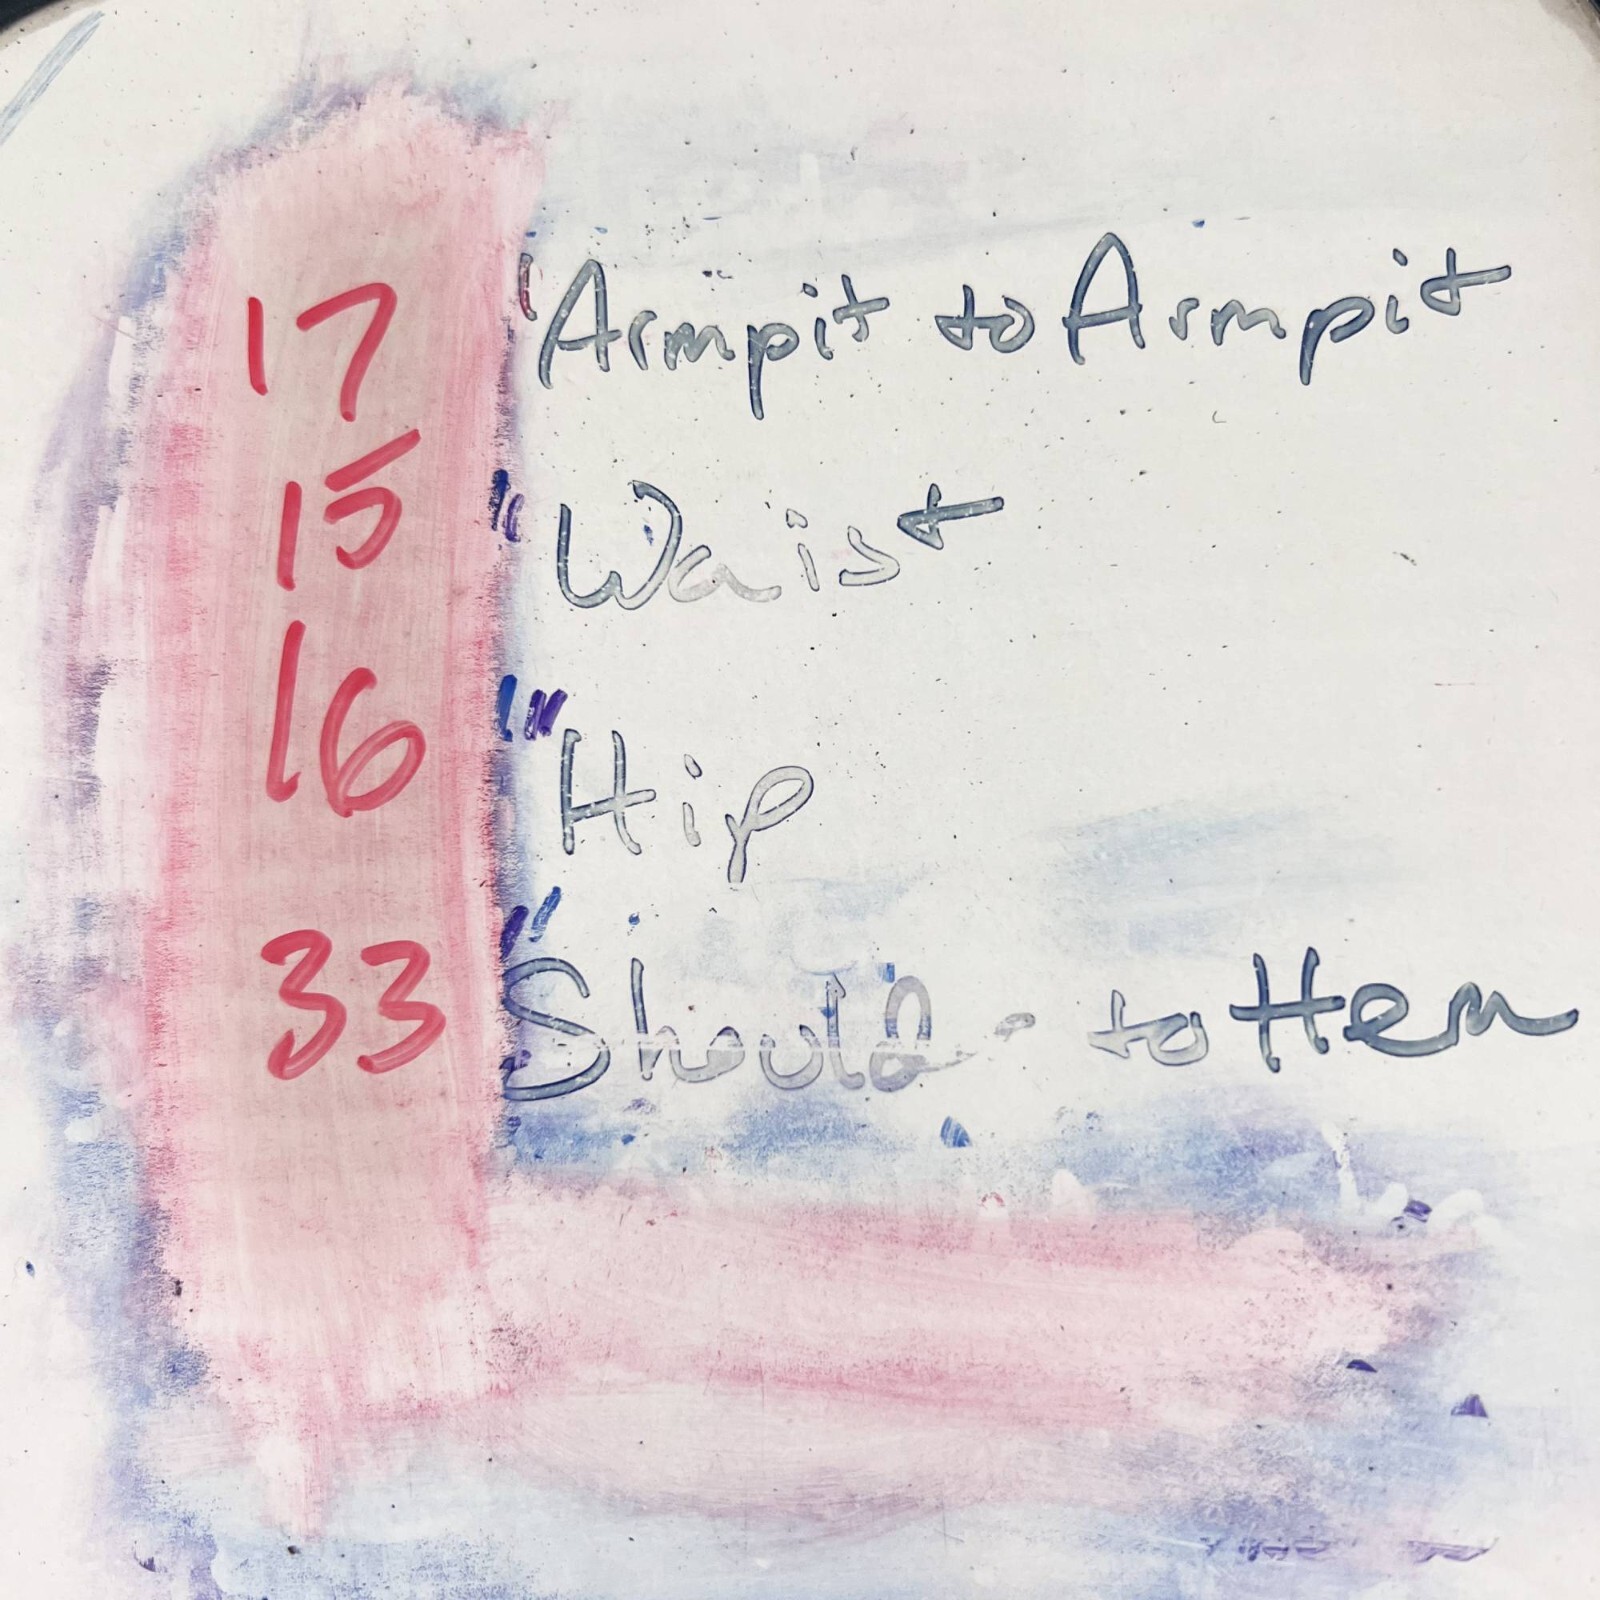 17" Armpit to Armpit
15" Waist
16" Hip
33" Should - to Hem